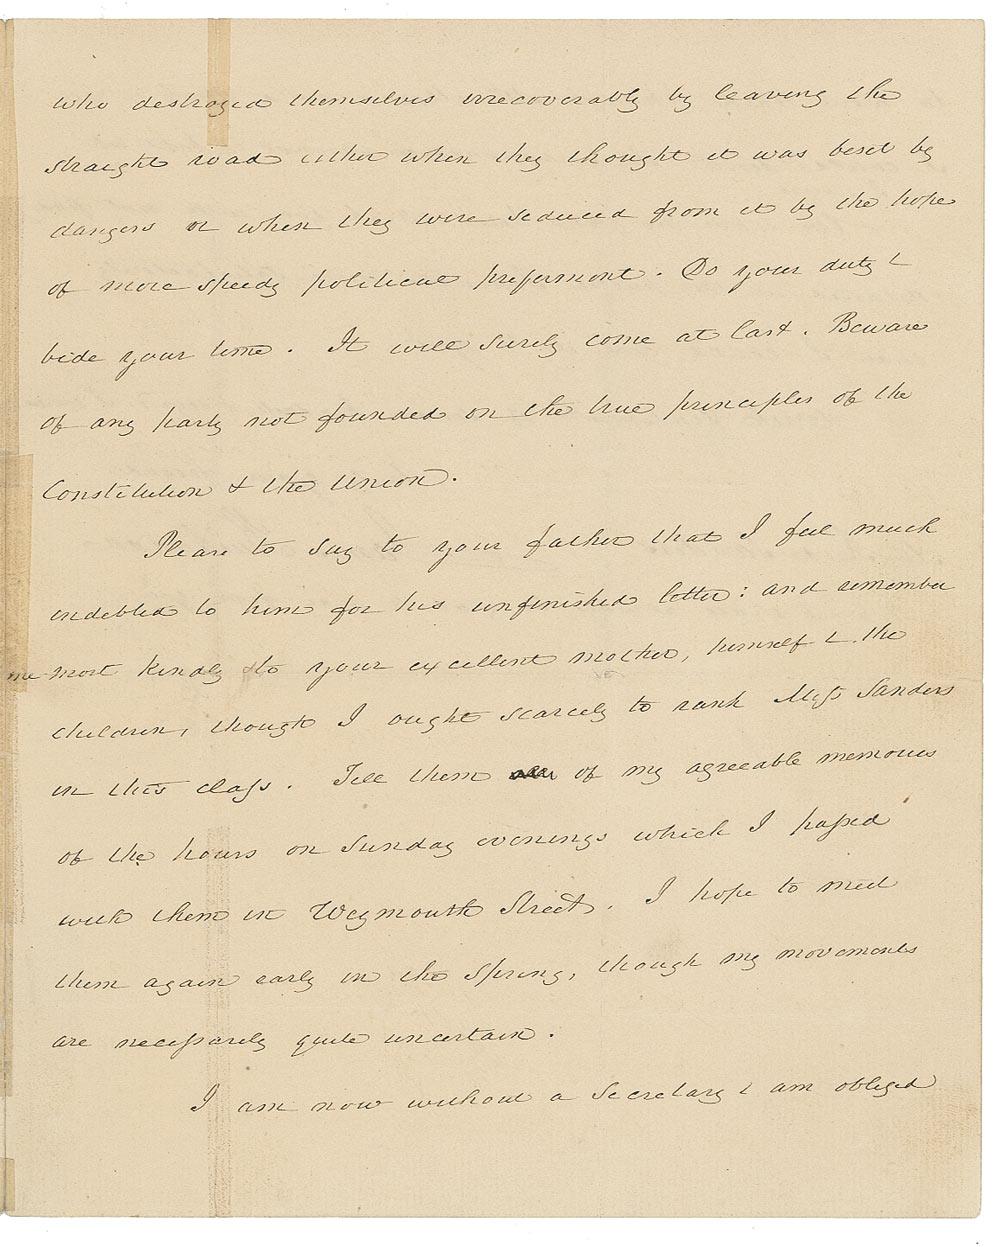 who destroyed themselves irrecoverably by leaving the
straight road either when they thought it was beset by
dangers or when they were seduced from it by the hope
of more speedy political preferment. Do your duty &
bide your time. It will surely come at last. Beware
of any party not founded on the true principles of the
Constitution & the Union.
Please to say to your father that I feel much
indebted to him for his unfinished letter: and remember
me most kindly to your excellent mother, himself & the
children, though I ought scarcely to rank Miss Sanders
in this class. Tell them of my agreeable memories
of the hours on Sunday evenings which I passed
with them in Weymouth Street. I hope to meet
them again early in the Spring, though my movements
are necessarily quite uncertain.
I am now without a Secretary & am obliged